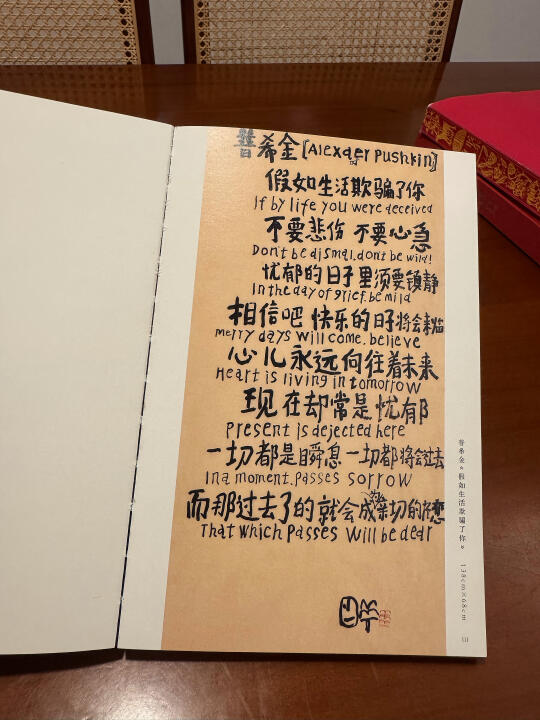 普希金 [Alexder Pushkin]
an
假如生活欺骗了你
If by life you were deceived
不要悲伤 不要心急
Don't be dismal, don't be wild!
忧郁的日子里须要镇静
In the day of grief, be mild
相信吧 快乐的日子将会来临
merry days will come, believe
心儿永远向往着未来
Heart is living in tomorrow
现在却常是忧郁
Present is dejected here
一切都是瞬息 一切都将会过去
In a moment, passes sorrow
而那过去了的就会成为亲切的怀恋
That which passes will be dear
普希金《假如生活欺骗了你》 138cm×68cm